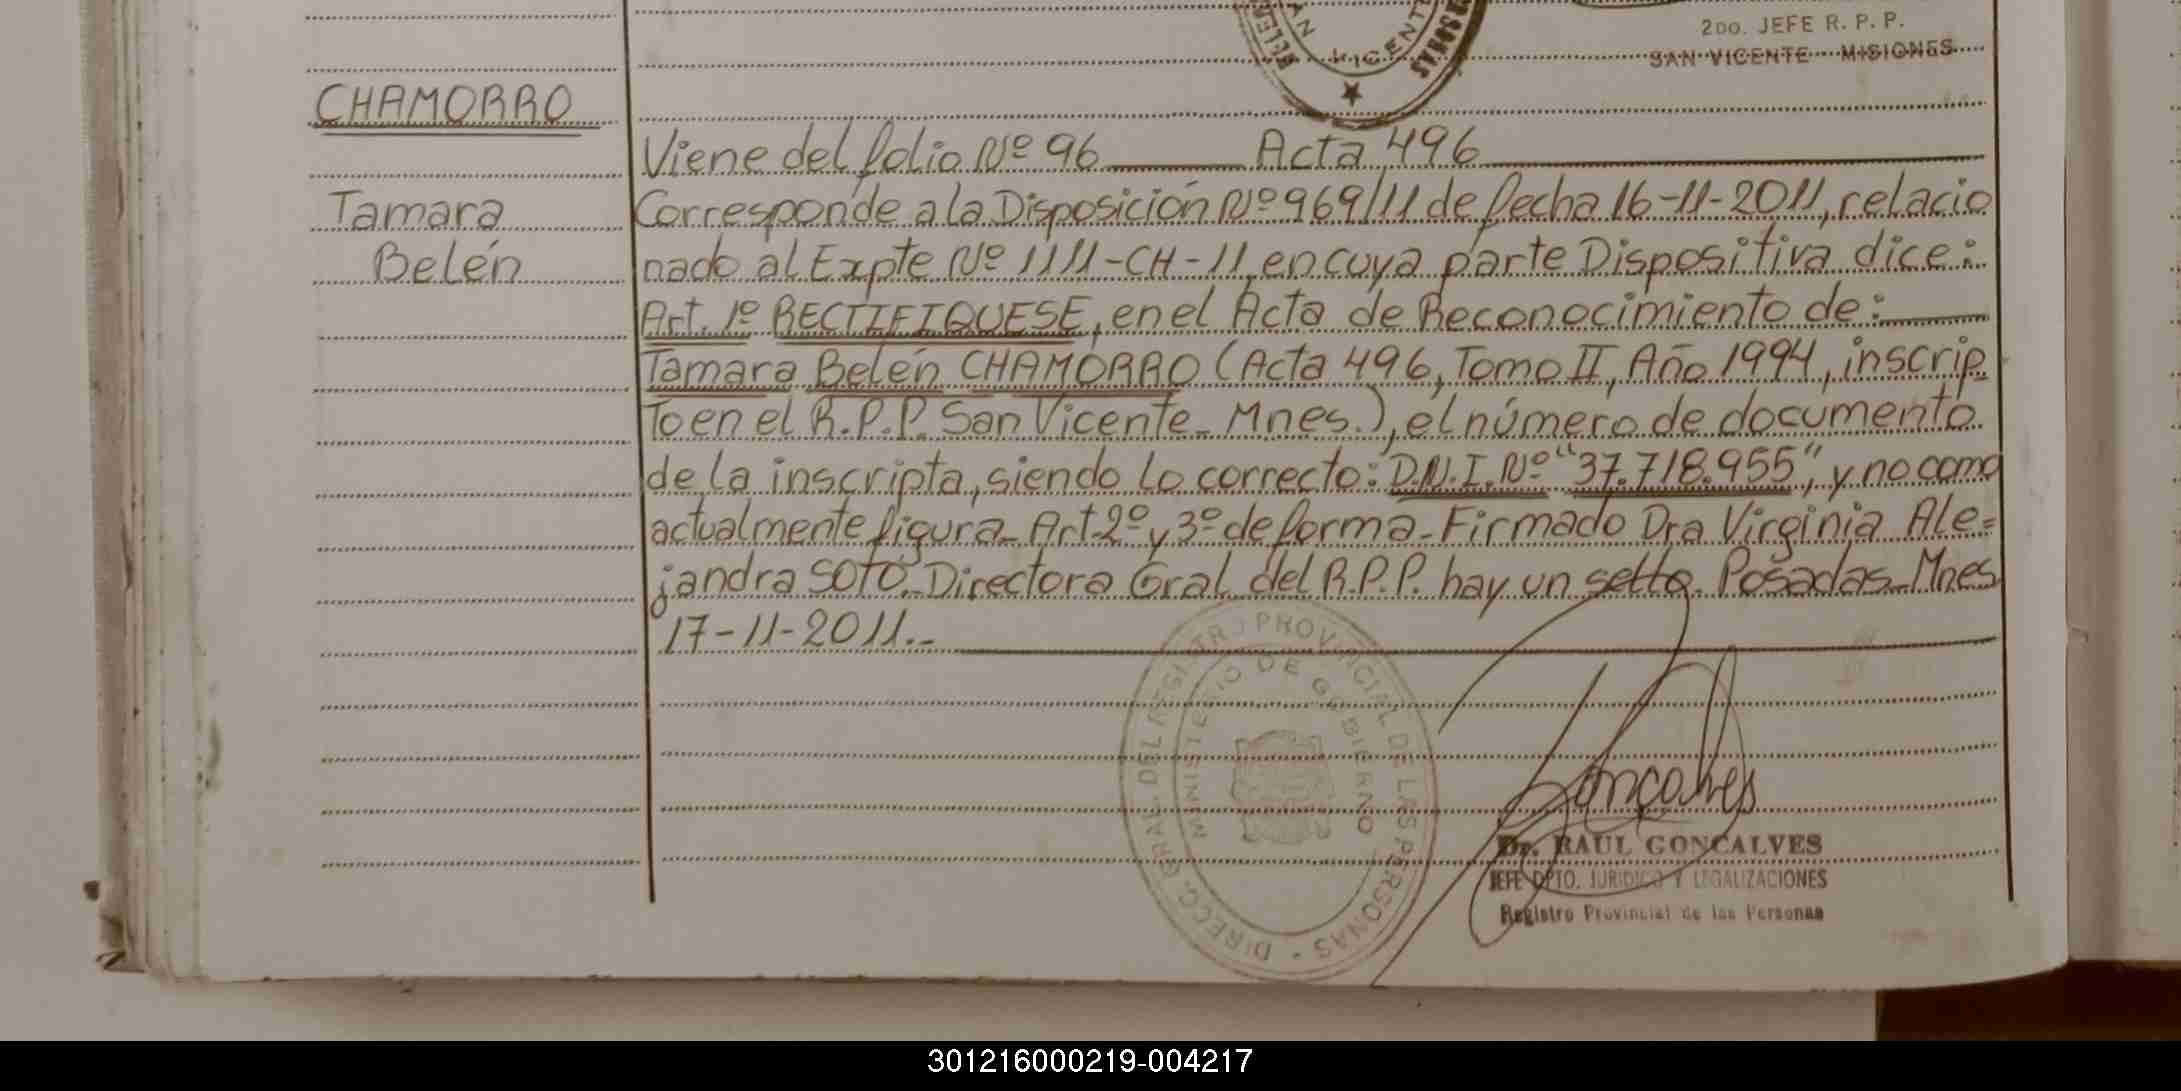 2DO. JEFE R. P. P.
SAN VICENTE - MISIONES
VICENTE
CHAMORRO
Viene del folio Nº 96 Acta 496
Tamara
Belén
Corresponde a la Disposición Nº 969/11 de fecha 16-11-2011, relacio
nado al Expte Nº 1111-CH-11, en cuya parte Dispositiva dice:
Art. 1º RECTIFIQUESE, en el Acta de Reconocimiento de:
Tamara Belén CHAMORRO (Acta 496, Tomo II, Año 1994, inscrip
to en el R.P.P. San Vicente - Mnes.), el número de documento
de la inscripta, siendo lo correcto: D.N.I. Nº "37.718.955", y no como
actualmente figura - Art 2º y 3º de forma - Firmado Dra Virginia Ale=
jandra SOTO. Directora Gral del R.P.P. hay un sello. Posadas - Mnes
17-11-2011.-
DIRECC. GRAL. DEL REGISTRO PROVINCIAL DE LAS PERSONAS
MINISTERIO DE GOBIERNO
Goncalves
Dr. RAUL GONCALVES
JEFE DPTO. JURIDICO Y LEGALIZACIONES
Registro Provincial de las Personas
301216000219-004217